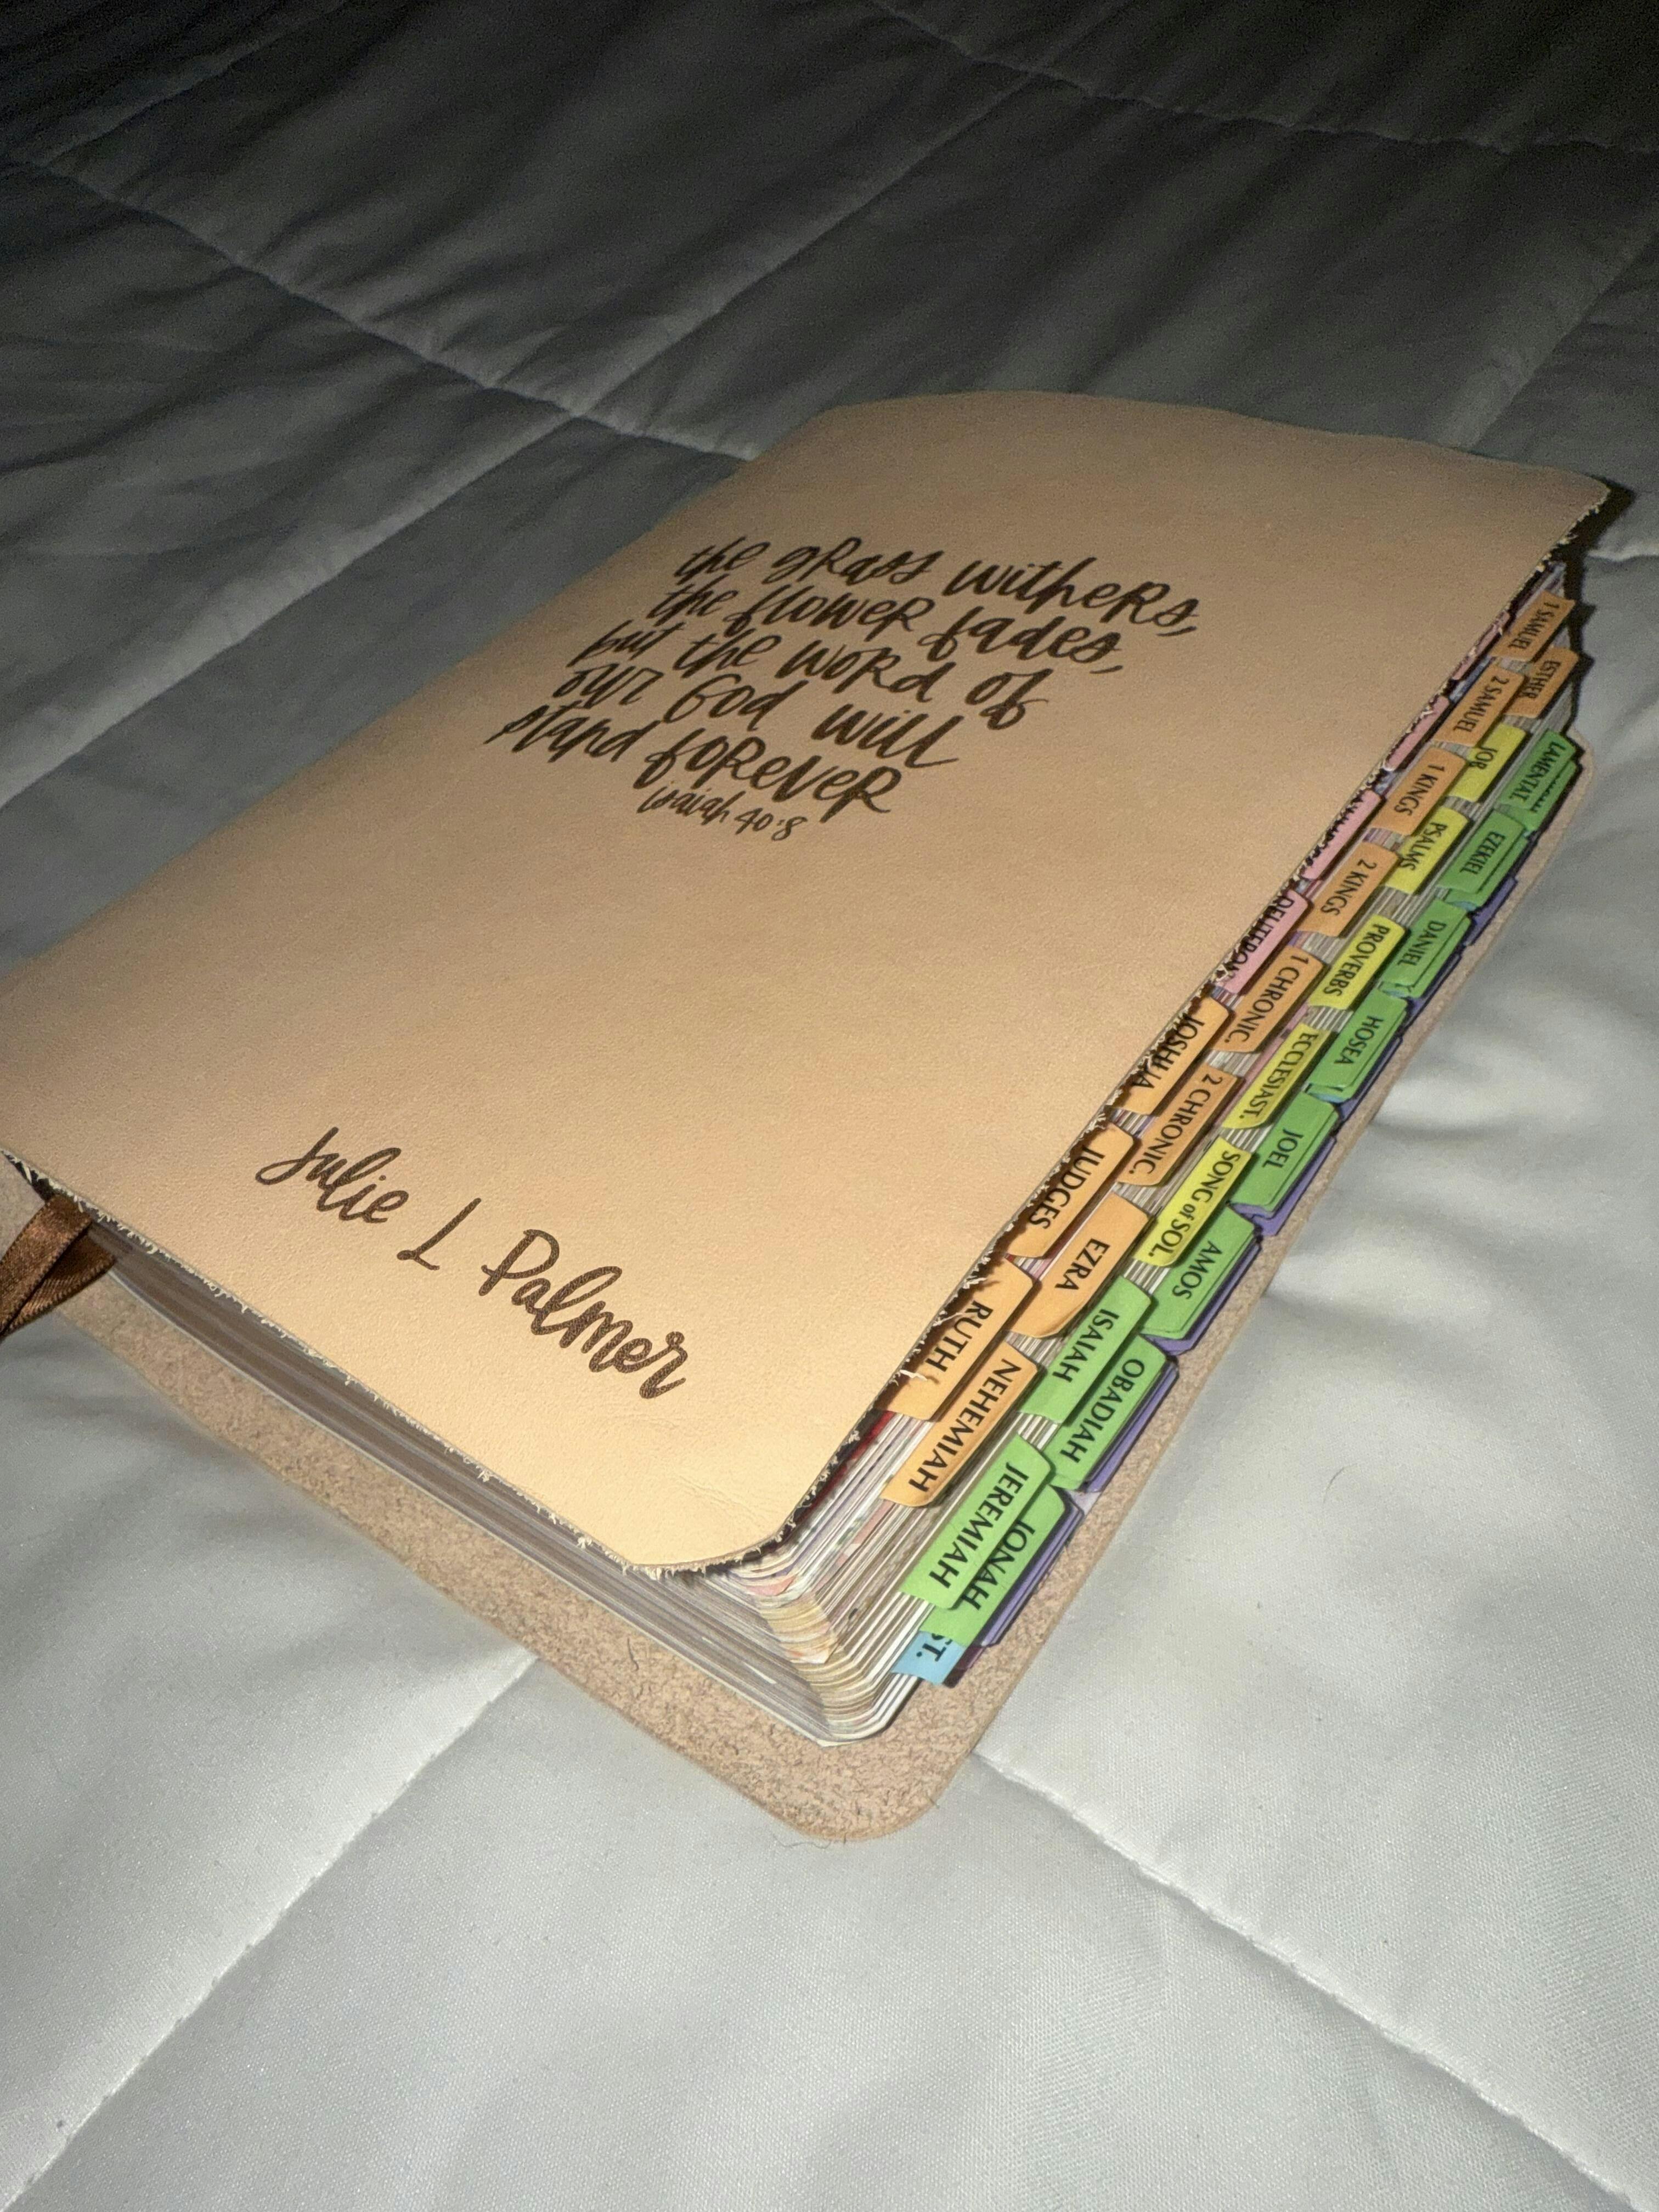 the grass withers,
the flower fades,
but the word of
our God will
stand forever
isaiah 40:8
Julie L Palmer
DEUTERON.
JOSHUA
JUDGES
RUTH
1 SAMUEL
2 SAMUEL
1 KINGS
2 KINGS
1 CHRONIC.
2 CHRONIC.
EZRA
NEHEMIAH
ESTHER
JOB
PSALMS
PROVERBS
ECCLESIAST.
SONG of SOL.
ISAIAH
JEREMIAH
LAMENTAT.
EZEKIEL
DANIEL
HOSEA
JOEL
AMOS
OBADIAH
JONAH
ST.